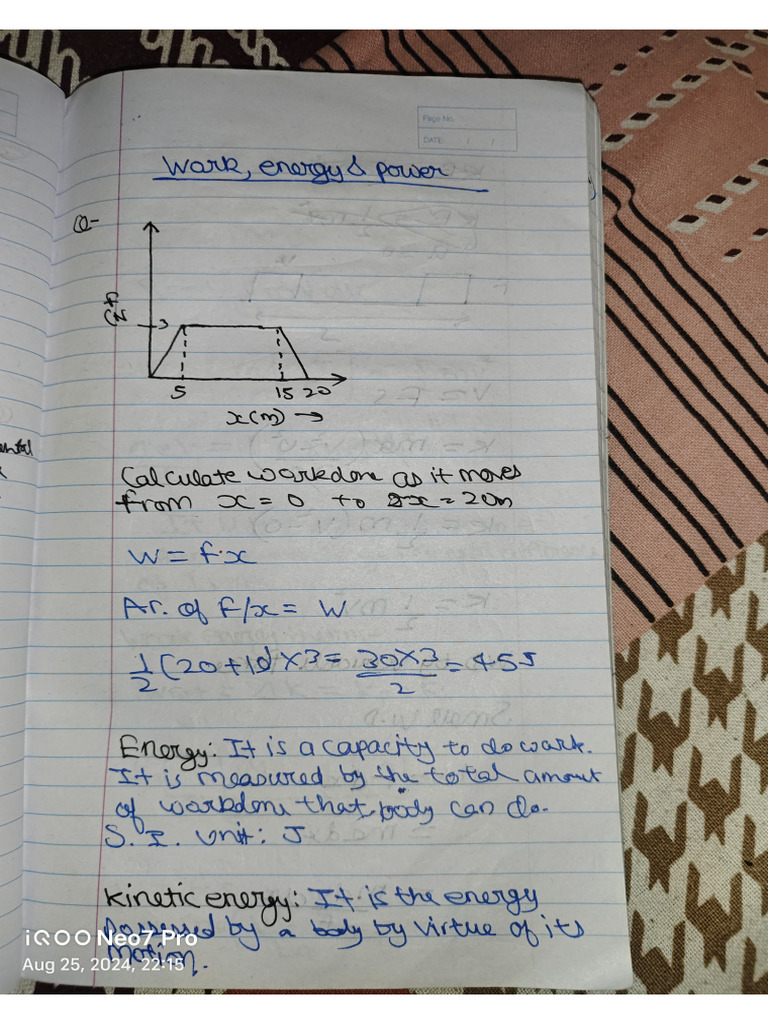 Page No.
DATE: / /
Work, energy & power
Q-
F(N)
3
5 15 20
x(m) →
Calculate workdone as it moves
from x = 0 to x = 20m
W = F·x
Ar. of F/x = W
1/2 (20+10) × 3 = 30×3/2 = 45J
Energy: It is a capacity to do work.
It is measured by the total amount
of workdone that body can do.
S.I. unit: J
Kinetic energy: It is the energy
possessed by a body by virtue of its
motion.
iQOO Neo7 Pro
Aug 25, 2024, 22:15